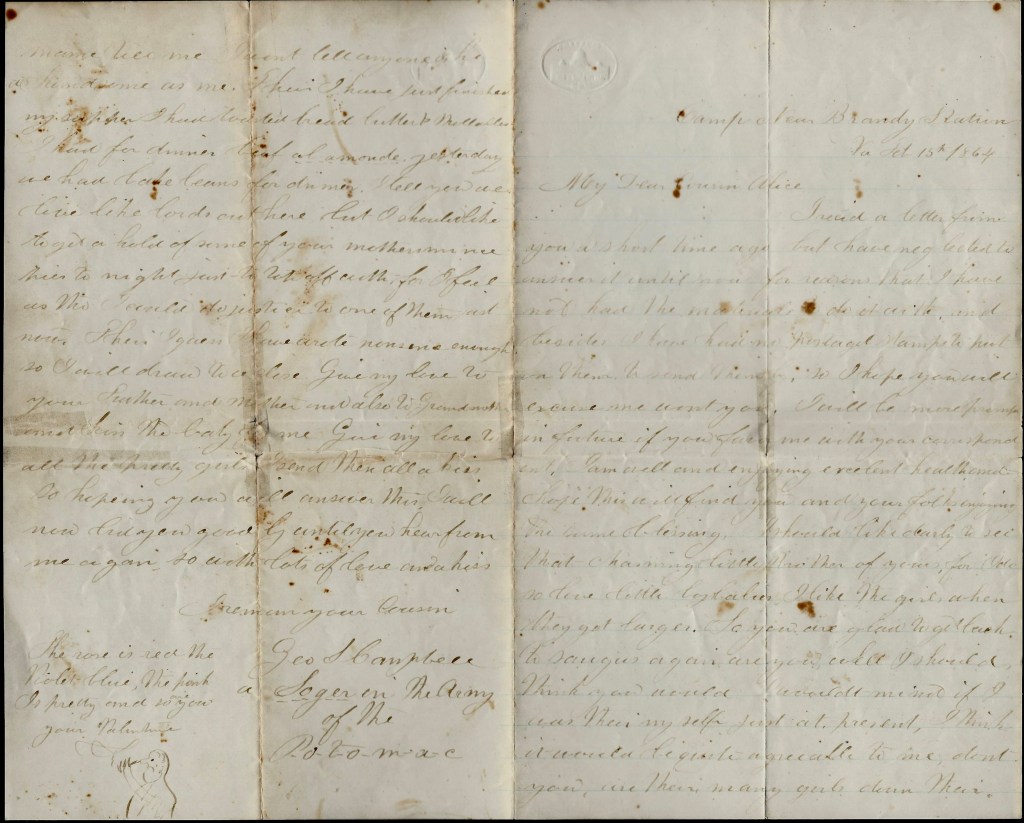 Camp Near Brandy Station
Va Feb 15th 1864
My Dear Cousin Alice
I recid a letter from
you a short time ago but have neglected to
answer it until now for reasons that I have
not had the materials to do it with, and
beside I have had no Postage Stamps to put
on them to send them. so I hope you will
excuse me wont you. I will be more prompt
in future if you favor me with your correspond
I am well and enjoying excelent health and
hope this will find you and your folks enjoying
the same blessing. I should like dearly to see
that charming little Brother of yours, for I
so love little babies I like the girls when
they get larger. So you are glad to get back
to Saugus again, are you, well I should
think you would I wouldt mind if I
was thair my self just at present, I think
it would be quite agreeable to me, dont
you, are thair many girls down thair.
mama tell me I wont tell anyone who
a handsome as me. I have just finished
my supper I had toasted bread butter & Molasses
I had for dinner yesterday
we had bake beans for dinner. I tell you we
live like lords out here but I should like
to get a hold of some of your mothers mince
pies to night just to top off with, for I feel
as tho I could do justice to one of them just
now. I guess I have wrote nonsense enough
so I will draw to a close Give my love to
your Father and Mother and also to Grandmother
and kiss the baby for me Give my love to
all the pretty girls I send them all a kiss
So hoping you will answer this, I will
now bid you good by until you hear from
me again, so with lots of love and a kiss
I remain your Cousin
Geo S Campbell
a Soger in the Army
of the
P-o-t-o-m-a-c
The rose is red the
Violet blue, the pink
Is pretty and so you
your Valentine